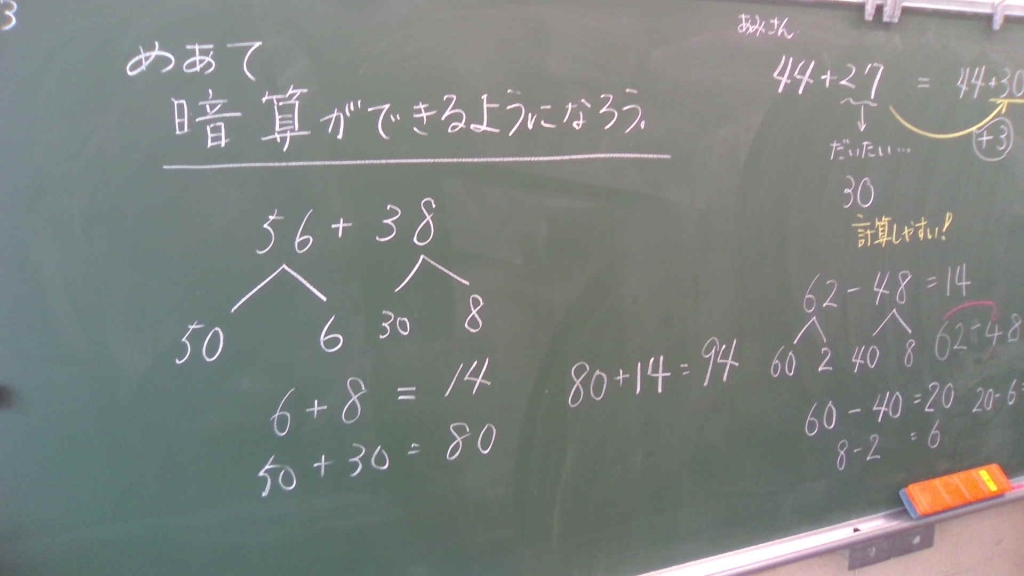 3
めあて
暗算ができるようになろう。
56 + 38
50 6 30 8
6 + 8 = 14
50 + 30 = 80
80 + 14 = 94
あみさん
44 + 27 = 44 + 30
+3
だいたい…
30
計算しやすい!
62 - 48 = 14
60 2 40 8
62 - 48
60 - 40 = 20
20 - 6
8 - 2 = 6